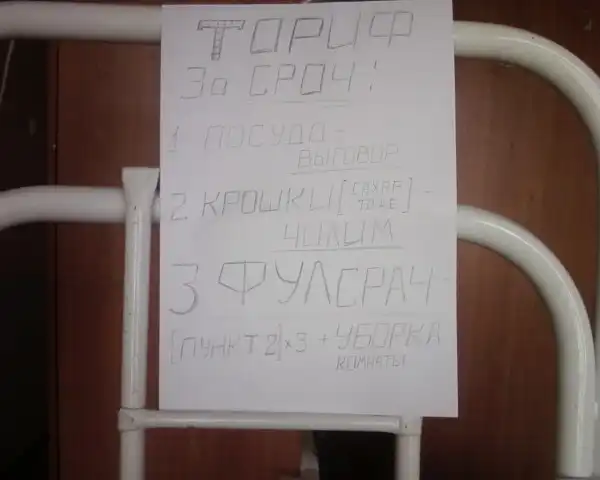 ТОРИФ
За СРАЧ:
1 ПОСУДА -
ВЫГОВОР
2 КРОШКИ [САХАР
ТОЖЕ] -
ЧИЛИМ
3 ФУЛСРАЧ
[ПУНКТ 2] x 3 + УБОРКА
КОМНАТЫ